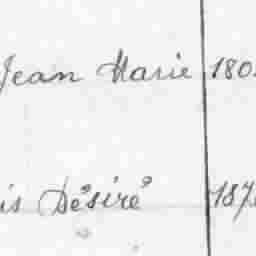 Jean Marie 180
is Désiré 187